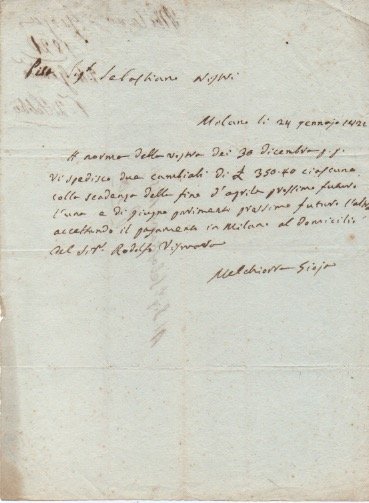 Sebastiano Nistri
Milano li 24 gennajo 1822
A norma della vostra dei 30 dicembre p.p.
vi spedisco due cambiali di £ 350.40 ciascuna
colla scadenza della fine d'aprile prossimo futuro
l'una e di giugno parimenti prossimo futuro l'altra
accettando il pagamento in Milano al domicilio
del Sigr. Rodolfo Vismara
Melchiorre Gioja